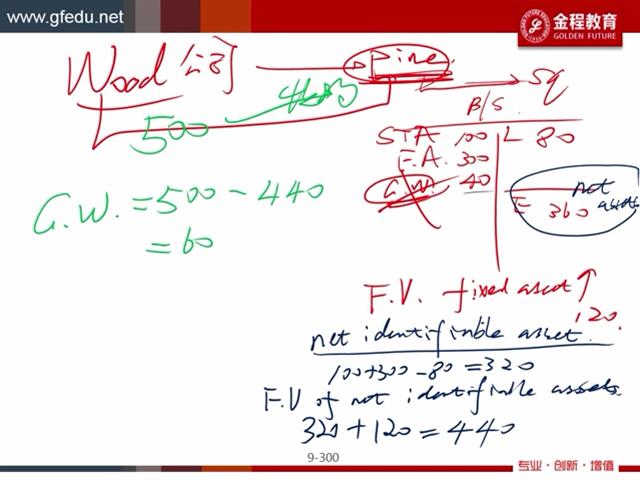 www.gfedu.net
金程教育
GOLDEN FUTURE
Wood 公司
Pine
Sq
500
B/S
STA 100 L 80
F.A. 300
G.W. 40
net assets
E 360
G.W. = 500 - 440
= 60
F.V. fixed asset ↑ 120.
net identifiable asset.
100+300-80=320
F.V of net identifiable assets.
320+120=440
9-300
专业·创新·增值